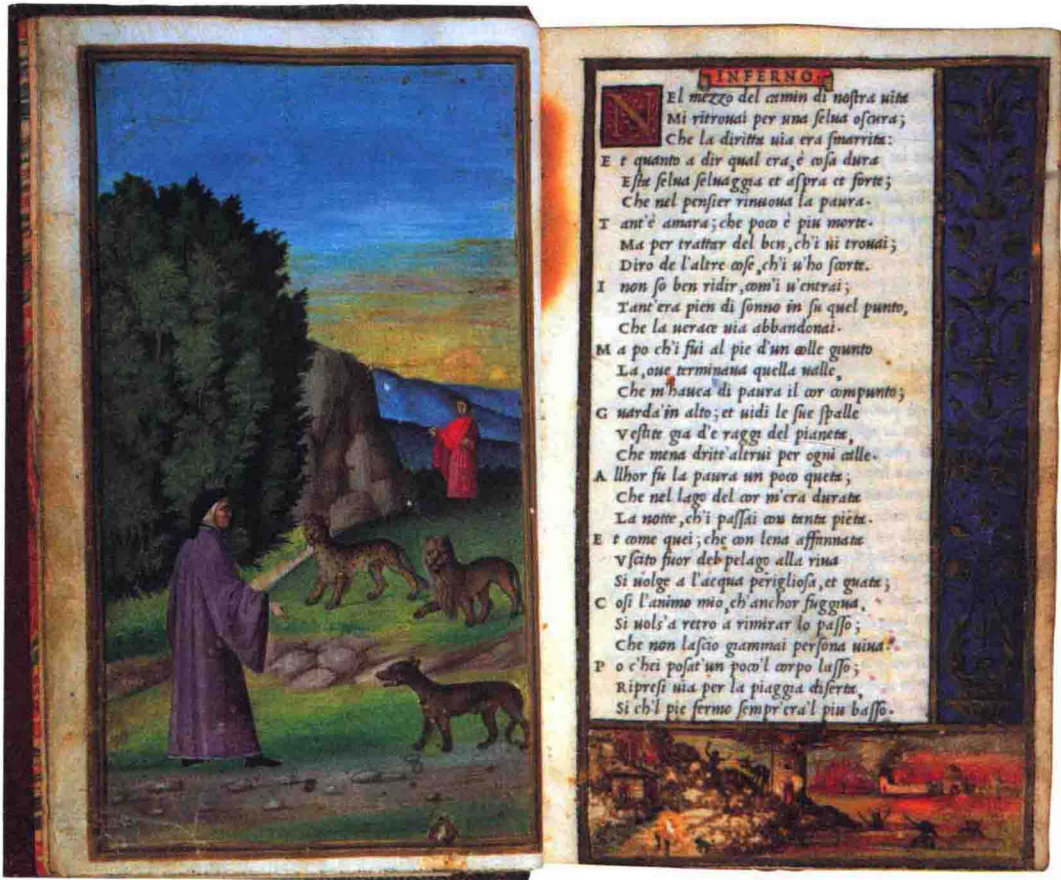 INFERNO
NEl mezzo del camin di noſtra uita
Mi ritrouai per una ſelua oſcura;
Che la diritta uia era ſmarrita:
E t quanto a dir qual era, è coſa dura
Eſta ſelua ſeluaggia et aſpra et forte;
Che nel penſier rinuoua la paura.
T ant'è amara; che poco è piu morte.
Ma per trattar del ben, ch'i ui trouai;
Diro de l'altre coſe, ch'i u'ho ſcorte.
I non ſo ben ridir, com'i u'entrai;
Tant'era pien di ſonno in ſu quel punto,
Che la uerace uia abbandonai.
M a po ch'i fui al pie d'un colle giunto
La, oue terminaua quella ualle,
Che m'hauea di paura il cor compunto;
G uarda'in alto; et uidi le ſue ſpalle
Veſtite gia d'e raggi del pianeta,
Che mena dritt'altrui per ogni calle.
A llhor fu la paura un poco queta;
Che nel lago del cor m'era durata
La notte, ch'i paſſai con tanta pieta.
E t come quei; che con lena affannata
Vſcito fuor del pelago alla riua
Si uolge a l'acqua periglioſa, et guata;
C oſi l'animo mio, ch'anchor fuggiua,
Si uolſ'a retro a rimirar lo paſſo;
Che non laſcio giammai perſona uiua.
P o c'hei poſat'un poco'l corpo laſſo;
Ripreſi uia per la piaggia diſerta,
Si ch'l pie fermo ſempr'era'l piu baſſo.